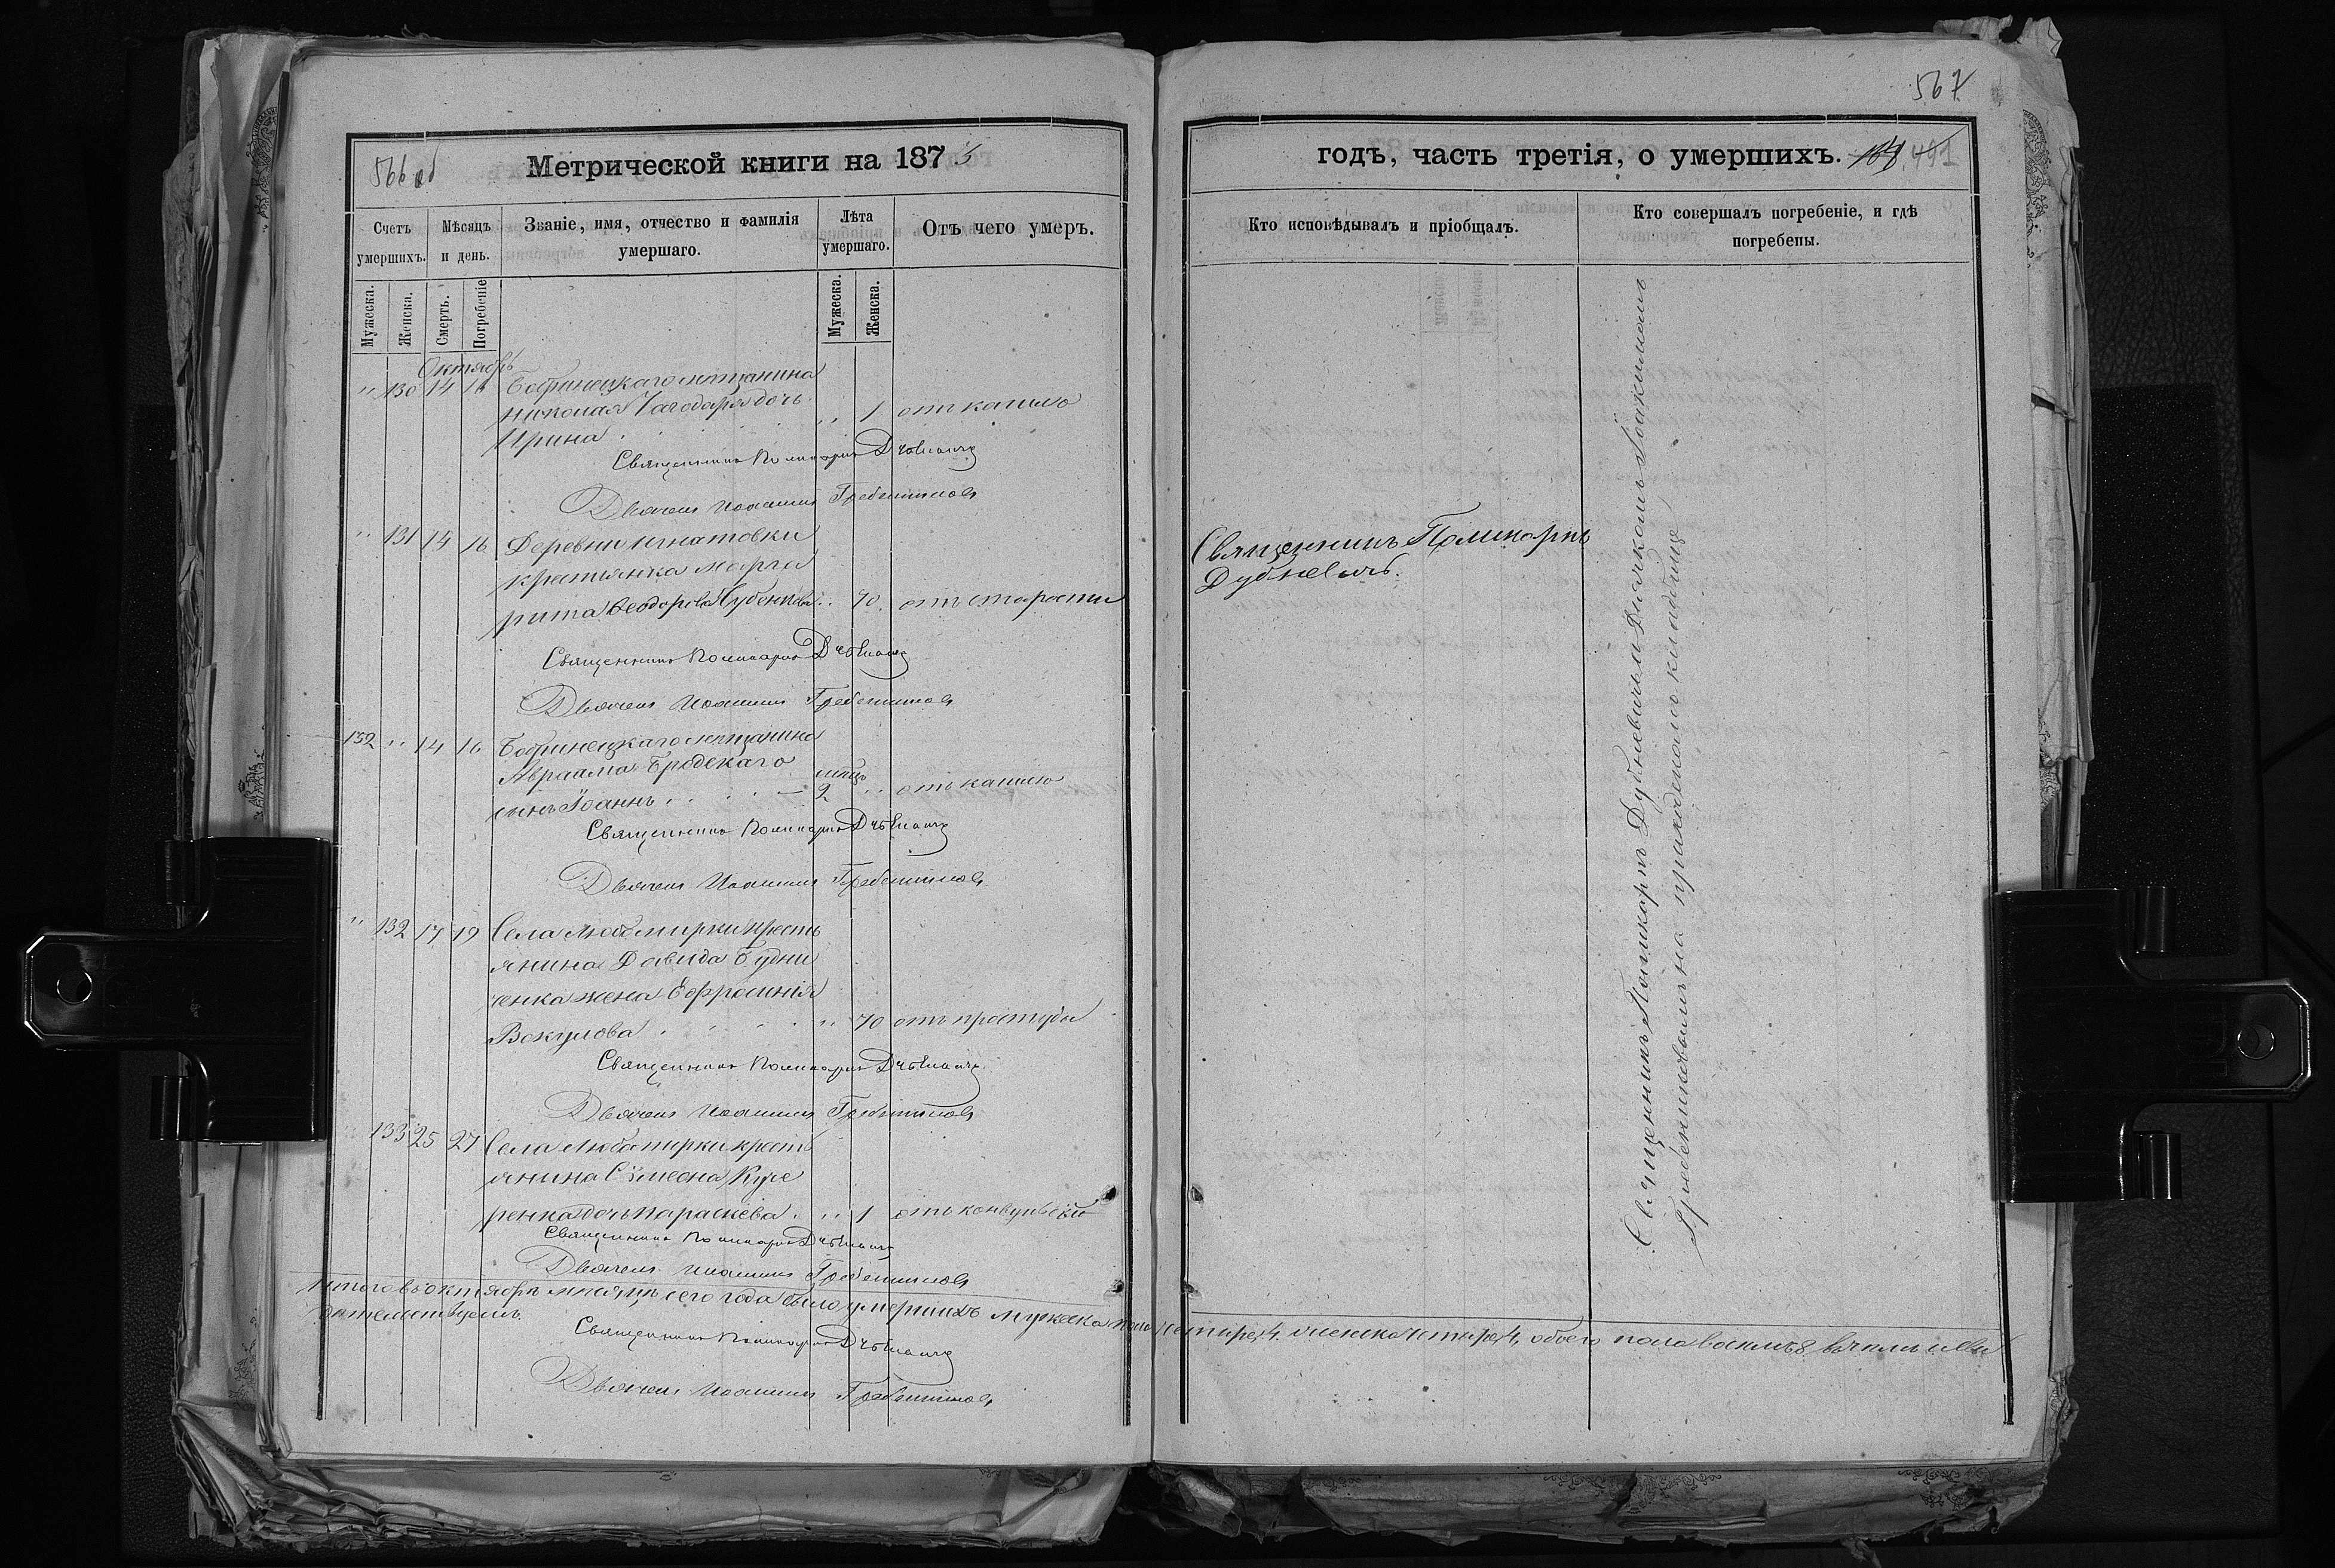 566 об
Метрической книги на 1873
Счетъ умершихъ.
Мѣсяцъ и день.
Званіе, имя, отчество и фамилія умершаго.
Лѣта умершаго.
Отъ чего умеръ.
Мужеска.
Женска.
Смерть.
Погребеніе
Мужеска.
Женска.
Октябрь
" 130 14 16 Бобринецкаго мѣщанина
Николая Чагодаря дочь
Ирина " 1 отъ кашлю
Священникъ Поликарпъ Дубневичъ
Дьячекъ Иоакимъ Гребенниковъ
" 131 14 16 Деревни Игнатовки
крестьянка Марга
рита Ѳеодорова Губенкова " 70 отъ старости
Священникъ Поликарпъ Дубневичъ
Дьячекъ Иоакимъ Гребенниковъ
132 " 14 16 Бобринецкаго мѣщанина
Авраама Бродскаго мѣсц
сынъ Іоаннъ 2 " отъ кашлю
Священникъ Поликарпъ Дубневичъ
Дьячекъ Иоакимъ Гребенниковъ
" 132 17 19 Села Любомирки кресть
янина Давида Будни
ченка жена Ефросинія
Вокулова " 70 отъ простуды
Священникъ Поликарпъ Дубневичъ
Дьячекъ Иоакимъ Гребенниковъ
133 25 27 Села Любомирки кресть
янина Сѵмеона Куре
ренка дочь Параскева " 1 отъ конвульсій
Священникъ Поликарпъ Дубневичъ
Дьячекъ Иоакимъ Гребенниковъ
Итого въ октябрѣ мѣсяцѣ сего года было умершихъ мужеска пола четыре 4, женска четыре 4, обоего пола восемь 8 въ чемъ и сви
дѣтельствуемъ.
Священникъ Поликарпъ Дубневичъ
Дьячекъ Иоакимъ Гребенниковъ
567
годъ, часть третія, о умершихъ. 491
Кто исповѣдывалъ и пріобщалъ.
Кто совершалъ погребеніе, и гдѣ погребены.
Священникъ Поликарпъ
Дубневичъ.
Священникъ Поликарпъ Дубневичъ съ дьячкомъ Іоакимомъ
Гребенниковымъ на приходскомъ кладбищѣ